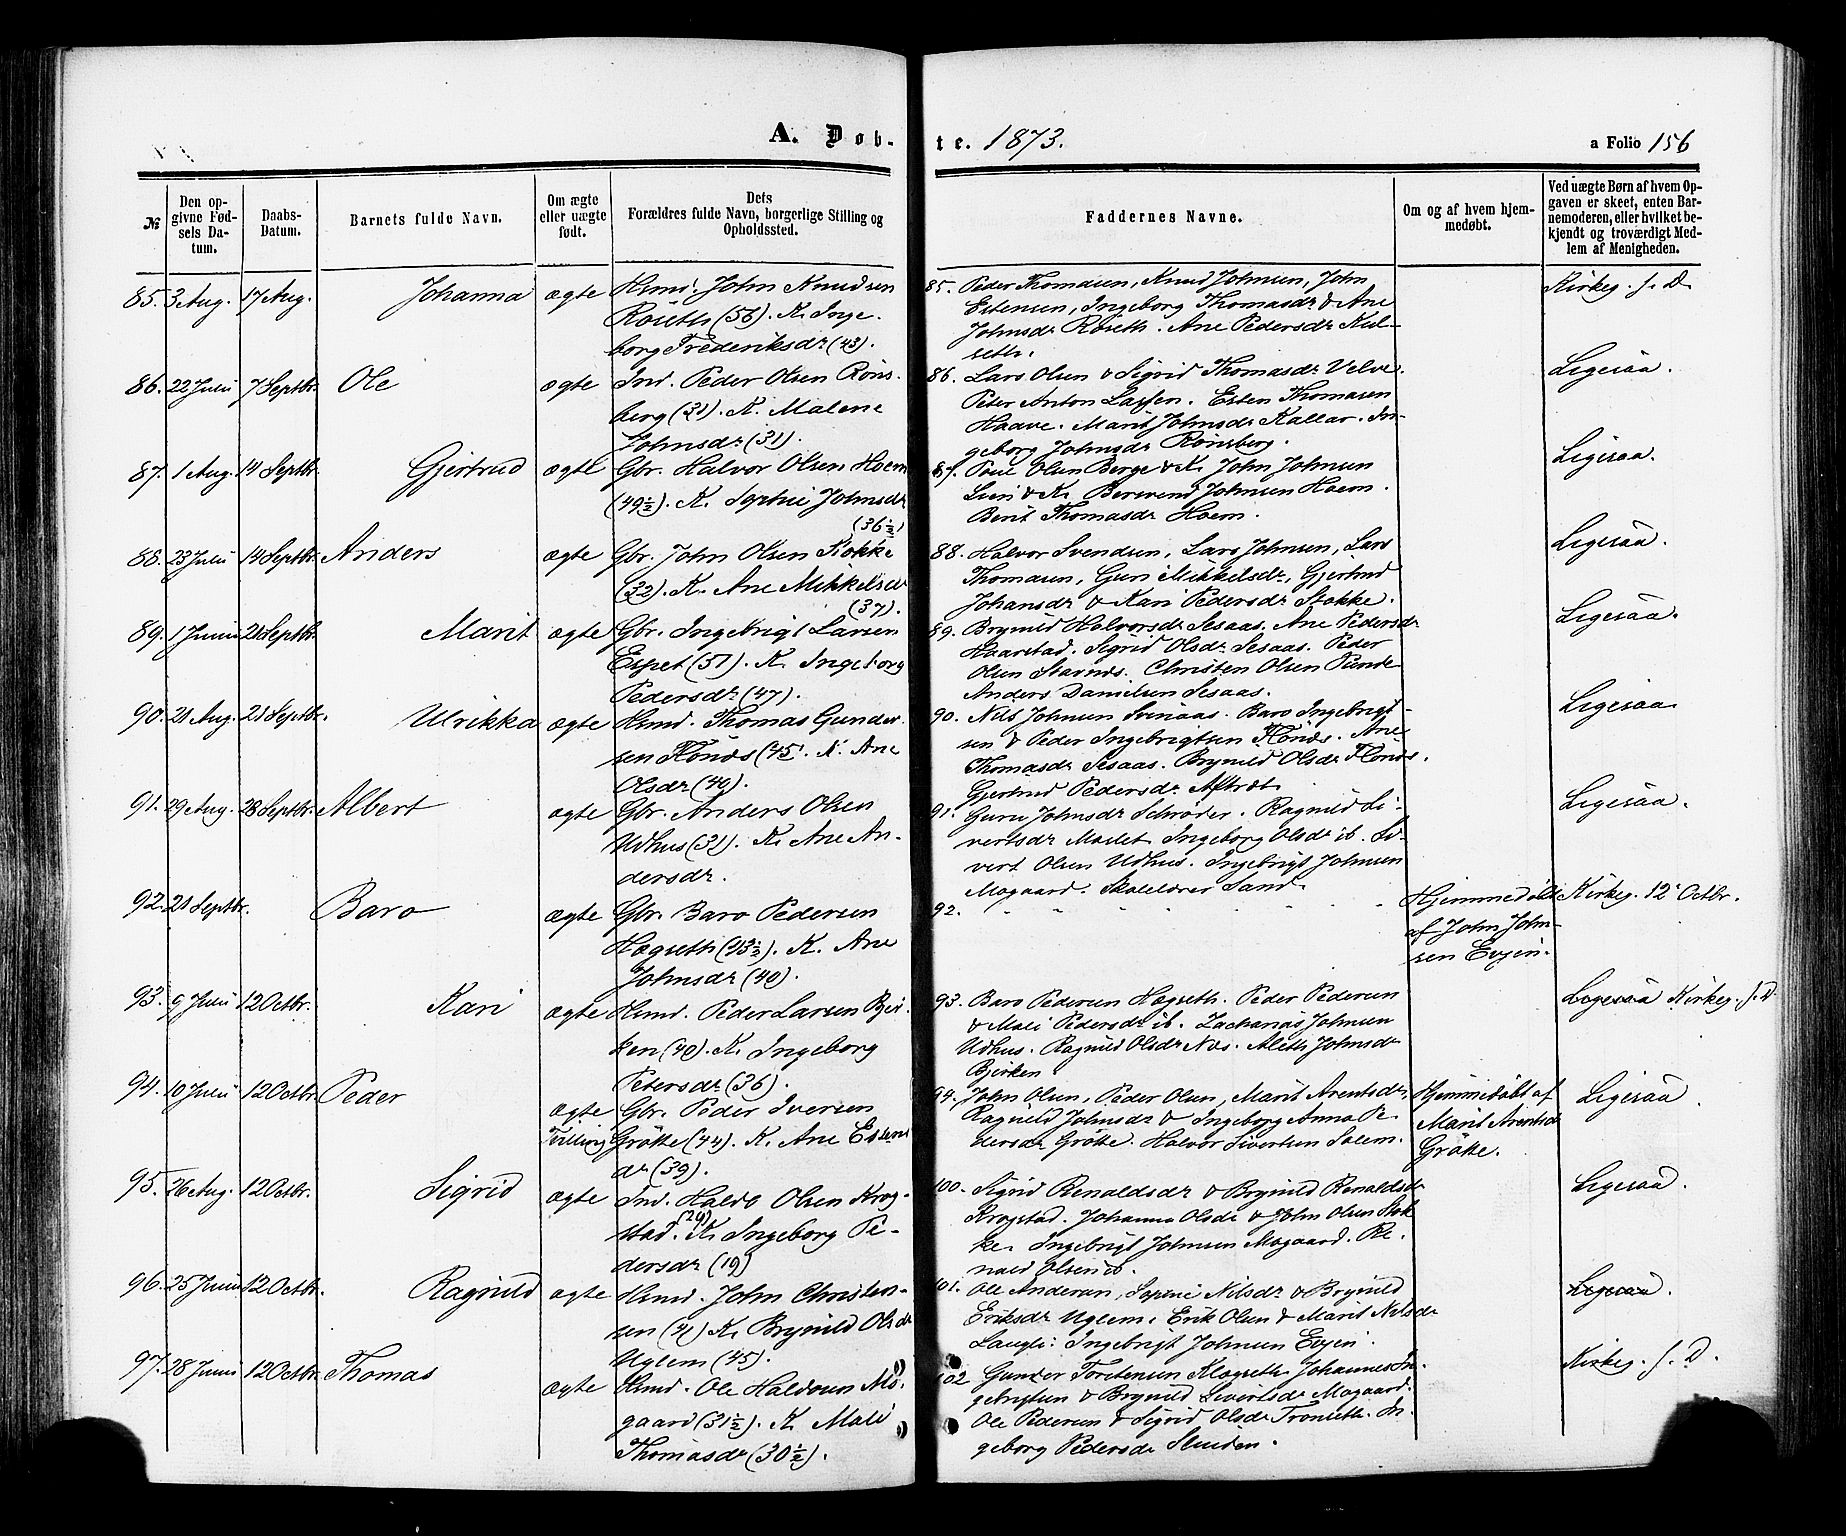 A. Døb-
te. 1873.
a Folio 156
№
Den op-
givne Fød-
sels Da-
tum.
Daabs-
Datum.
Barnets fulde Navn.
Om ægte
eller uægte
født.
Dets
Forældres fulde Navn, borgerlige Stilling og
Opholdssted.
Faddernes Navne.
Om og af hvem hjem-
medøbt.
Ved uægte Børn af hvem Op-
gaven er skeet, enten Bar-
nemoderen, eller hvilket be-
kjendt og troværdigt Med-
lem af Menigheden.
85. 3 Aug. 17 Aug. Johanna ægte Hsmd. John Knudsen
Röseth (56). K. Inge-
borg Frederiksdr (43).
85. Peder Thomasen, Knud Johnsen, John
Estensen, Ingeborg Thomasdr & Ane
Johnsdr Röseth. Ane Pedersdr Kul-
seth.
Kirkeg. s. D.
86. 22 Juli 7 Septbr. Ole ægte Ind. Peder Olsen Röns-
berg (31). K. Malene
Johnsdr (31).
86. Lars Olsen & Sigrid Thomasdr Velve.
Peter Anton Larsen. Esten Thomasen
Haave. Marit Johnsdr Kallar. In-
geborg Johnsdr Rönsberg.
Ligesaa.
87. 1 Aug. 14 Septbr. Gjertrud ægte Gbr. Halvor Olsen Hoem
(49½). K. Sophie Johnsdr
(36½)
87. Poul Olsen Berge & K. John Johnsen
Lien & K. Bersvend Johnsen Hoem.
Berit Thomasdr Hoem.
Ligesaa.
88. 23 Juli 14 Septbr. Anders ægte Gbr. John Olsen Stokke
(32). K. Ane Mikkelsdr
(37).
88. Halvor Svendsen, Lars Johnsen, Lars
Thomasen, Guri Mikkelsdr, Gjertrud
Johansdr & Kari Pedersdr Stokke.
Ligesaa.
89. 1 Juni 21 Septbr. Marit ægte Gbr. Ingebrigt Larsen
Espet (51). K. Ingeborg
Pedersdr (47).
89. Brynild Halvorsdr Sesaas. Ane Pedersdr
Haarstad. Sigrid Olsdr Sesaas. Peder
Olsen Stavnes. Christen Olsen Punde
Anders Danielsen Sesaas.
Ligesaa.
90. 21 Aug. 21 Septbr. Ulrikka ægte Hsmd. Thomas Gunder-
sen Flönæs (45). K. Ane
Olsdr (40).
90. Nils Johnsen Svinaas. Baro Ingebrigt-
sen & Peder Ingebrigtsen Flönæs. Ane
Thomasdr Sesaas. Brynild Olsdr Flönæs.
Gjertrud Pedersdr Aftret.
Ligesaa.
91. 29 Aug. 28 Septbr. Albert ægte Gbr. Anders Olsen
Udhus (31). K. Ane An-
dersdr.
91. Guru Johnsdr Schröder. Ragnild Si-
vertsdr Maslet. Ingeborg Olsdr ib. Si-
vert Olsen Udhus. Ingebrigt Johnsen
Mogaard. Skolelærer Sand.
Ligesaa.
92. 21 Septbr. Baro ægte Gbr. Baro Pedersen
Hægseth (43½). K. Ane
Johnsdr (40).
92.
Hjemmedöbt
af John John-
sen Evjen.
Kirkeg. 12 Octbr.
93. 9 Juli 12 Octbr. Kari ægte Hsmd. Peder Larsen Bjer-
ken (40). K. Ingeborg
Petersdr (36).
93. Baro Pedersen Hægseth. Peder Pedersen
& Mali Pedersdr ib. Zacharias Johnsen
Udhus. Ragnild Olsdr Næs. Aleth Johnsdr
Bjerken.
Ligesaa Kirkeg. s. D.
94. 10 Juli 12 Octbr. Peder ægte Tvilling Gbr. Peder Iversen
Grötte (44). K. Ane Estens-
dr (39).
94. John Olsen, Peder Olsen, Marit Arentsdr,
Ragnild Johnsdr & Ingeborg Anna Pe-
dersdr Grötte. Halvor Sivertsen Salem.
Hjemmedöbt af
Marit Arentsdr
Grötte.
Ligesaa
95. 26 Aug. 12 Octbr. Sigrid ægte Ind. Haldo Olsen Krog-
stad (29). K. Ingeborg Pe-
dersdr (19)
100. Sigrid Renaldsdr & Brynild Renaldsdr
Krogstad. Johanna Olsdr & John Olsen Stok-
ke. Ingebrigt Johnsen Mogaard. Re-
nald Olsen ib.
Ligesaa.
96. 25 Juni 12 Octbr. Ragnild ægte Hsmd. John Christen-
sen (41) K. Brynild Olsdr
Uglem (45).
101. Ole Andersen, Sophie Nilsdr & Brynild
Eriksdr Uglem. Erik Olsen & Marit Nilsdr
Laugli. Ingebrigt Johnsen Evjen.
Ligesaa.
97. 28 Juni 12 Octbr. Thomas ægte Hsmd. Ole Haldosen Mo-
gaard (31½). K. Mali
Thomasdr (30½).
102 Gunder Torstensen Klegseth. Johannes In-
gebrigtsen & Brynild Sivertsdr Mogaard.
Ole Pedersen & Sigrid Olsdr Tronseth. In-
geborg Pedersdr Sluiden.
Kirkeg. s. D.